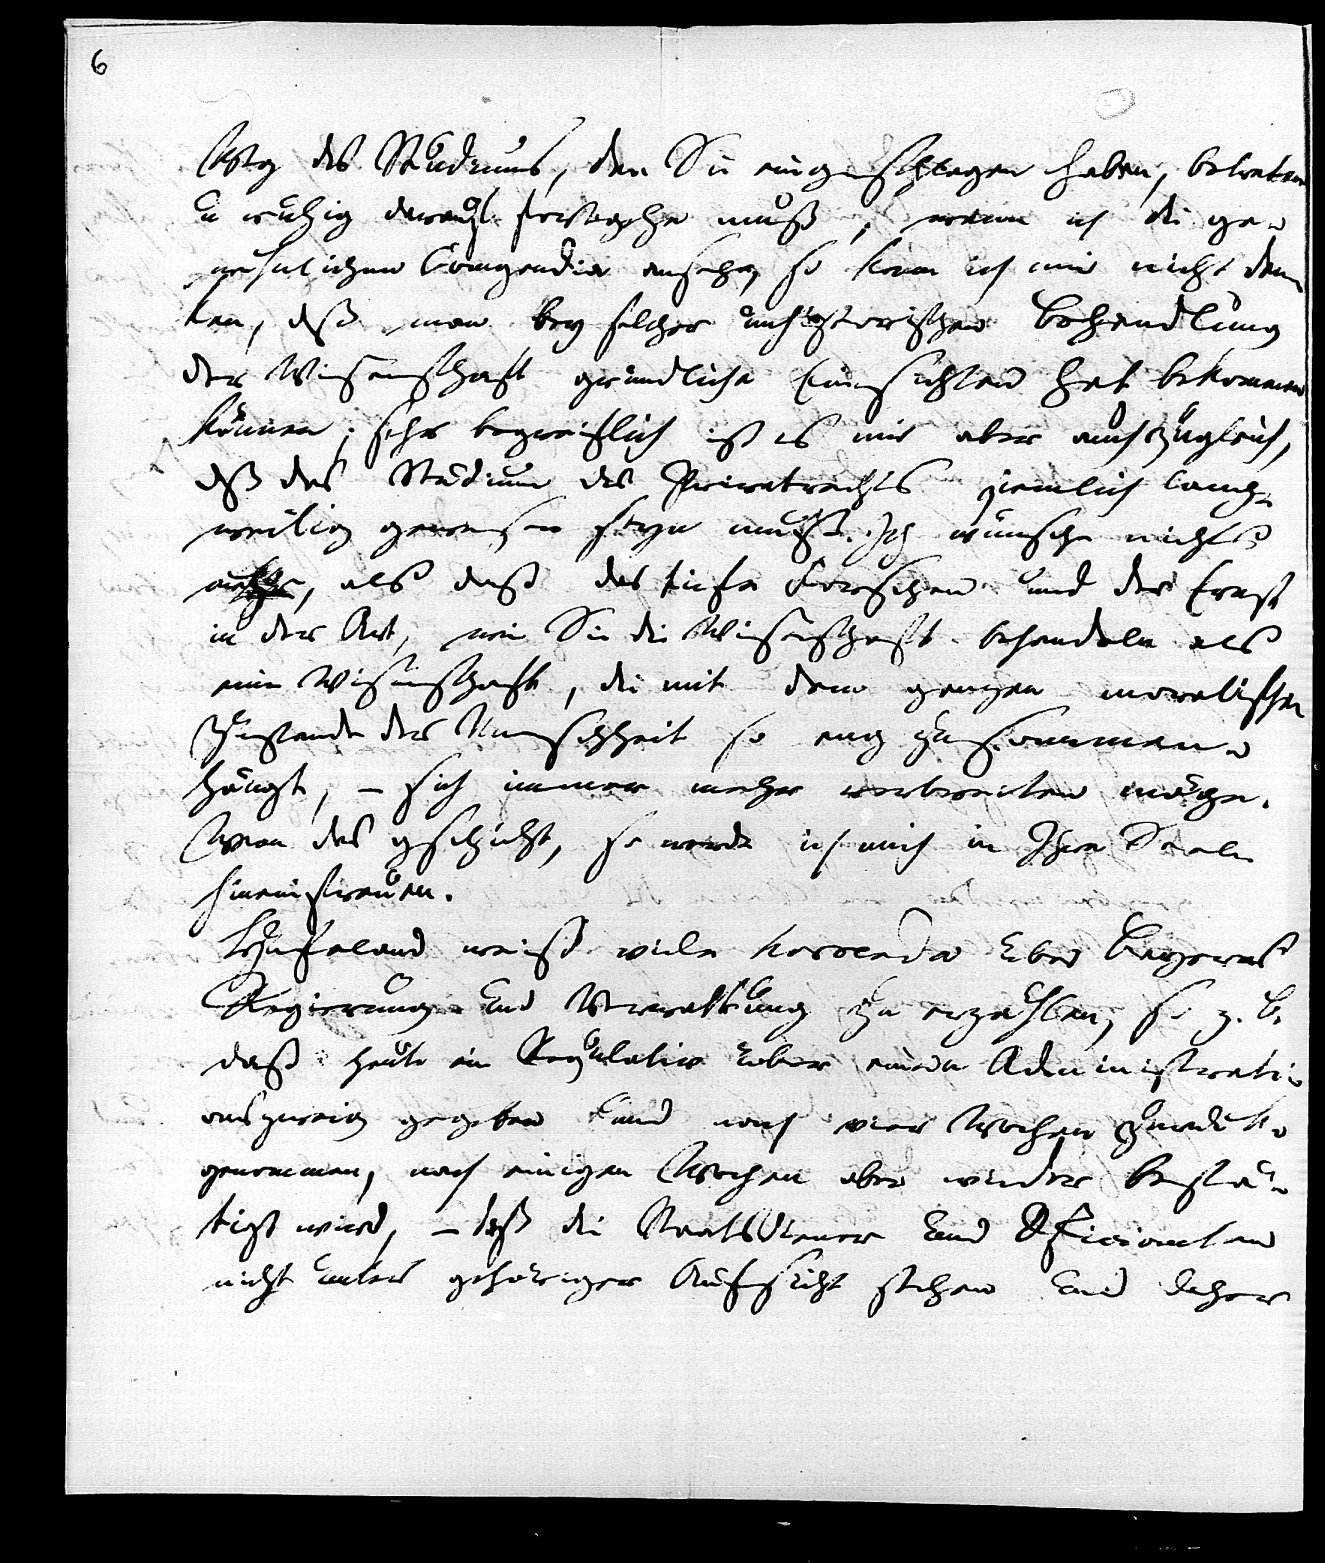 6
Weg des Studiums, den Sie eingeschlagen haben, betreten
u ruhig darauf fortgehn muß; wenn ich die ge-
wöhnlichen Compendien ansehe, so kann ich mir nicht den
ken, daß man bey solcher unhistorischen Behandlung
der Wissenschaft gründliche Einsichten hat bekommen
können; sehr begreiflich ist es mir aber auch zugleich,
daß das Studium des Privatrechts ziemlich lang-
weilig gewesen seyn muß. Ich wünsche nichts
mehr, als daß das tiefe Forschen und der Ernst
in der Art, wie Sie die Wissenschaft behandeln als
eine Wissenschaft, die mit dem ganzen moralischen
Zustande der Menschheit so eng zusammen-
hängt, – sich immer mehr verbreiten möge.
Wenn das geschieht, so werde ich mich in Ihre Seele
hineinfreuen.
Hufeland weiß viele horrenda über Bayerns
Regierung und Verwaltung zu erzählen, so z. B.
daß heute ein Regulativ über einen Administrati
onszweig gegeben und nach vier Wochen zurück-
genommen, nach einigen Wochen aber wieder bestä-
tigt wird, – daß die Staatsdiener und Officianten
nicht unter gehöriger Aufsicht stehen und daher